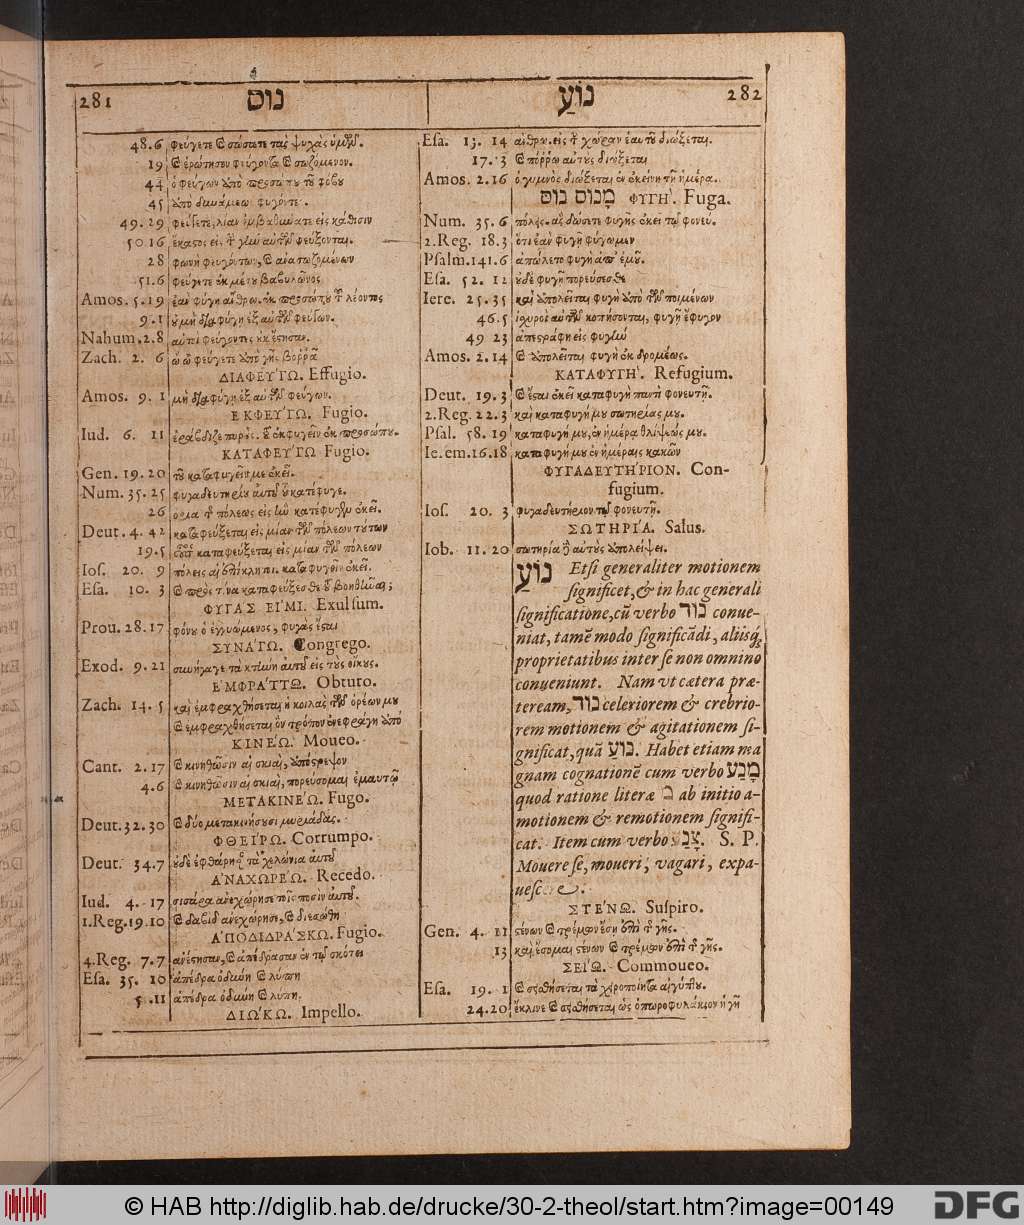 281 נוס
48.6 φεύγετε καὶ σώσατε τὰς ψυχὰς ὑμῶν.
19 καὶ ἐρώτησον φεύγοντα καὶ σωζόμενον.
44 ὁ φεύγων ἀπὸ προσώπου τοῦ φόβου
45
49.29
50.16 ἕκαστος εἰς τὴν γῆν αὐτοῦ φεύξονται.
28 φωνὴ φευγόντων, καὶ ἀνασωζομένων
51.6 φεύγετε ἐκ μέσου βαβυλῶνος
Amos. 5.19 ἐὰν φύγῃ ἄνθρω. ἐκ προσώπου τοῦ λέοντος
9.1 οὐ μὴ διαφύγῃ ἐξ αὐτῶν φεύγων.
Nahum. 2.8 φεύγοντες οὐκ ἔστησαν.
Zach. 2. 6 ὦ ὦ φεύγετε ἀπὸ γῆς βοῤῥᾶ
ΔΙΑΦΕΎΓΩ. Effugio.
Amos. 9. 1 μὴ διαφύγῃ ἐξ αὐτῶν φεύγων.
ΕΚΦΕΎΓΩ. Fugio.
Iud. 6. 11 ἐκφυγεῖν ἐκ προσώπου.
ΚΑΤΑΦΕΎΓΩ Fugio.
Gen. 19. 20 τοῦ καταφυγεῖν με ἐκεῖ.
Num. 35. 25 φυγαδευτηρίου αὐτοῦ οὗ κατέφυγε.
26 ὅρια τῆς πόλεως εἰς ἣν κατέφυγεν ἐκεῖ.
Deut. 4. 42 καταφεύξεται εἰς μίαν τῶν πόλεων τούτων
19.5 οὗτος καταφεύξεται εἰς μίαν τῶν πόλεων
Ios. 20. 9 πόλεις αἱ ἐπίκλητοι. καταφυγεῖν ἐκεῖ.
Esa. 10. 3 καὶ πρὸς τίνα καταφεύξεσθε τοῦ βοηθῆναι;
ΦΥΓΑ'Σ ΕΙ'ΜΙ. Exulsum.
Prou. 28. 17 φόνου ὁ ἐγγυώμενος, φυγὰς ἔσται
ΣΥΝΑ'ΓΩ. Congrego.
Exod. 9. 21 συνήγαγε τὰ κτήνη αὐτοῦ εἰς τοὺς οἴκους.
ἘΜΦΡΑ'ΤΤΩ. Obturo.
Zach. 14. 5 καὶ ἐμφραχθήσεται ἡ κοιλὰς τῶν ὀρέων μου
καὶ ἐμφραχθήσεται ὃν τρόπον ἐνεφράγη ἀπὸ
ΚΙΝΕ'Ω. Moueo.
Cant. 2. 17 καὶ κινηθῶσιν αἱ σκιαὶ, ἀπόστρεψον
4.6 καὶ κινηθῶσιν αἱ σκιαὶ, πορεύσομαι ἐμαυτῷ
ΜΕΤΑΚΙΝΕ'Ω. Fugo.
Deut. 32. 30 καὶ δύο μετακινήσουσι μυριάδας.
ΦΘΕΙ'ΡΩ. Corrumpo.
Deut. 34.7 οὐδὲ ἐφθάρησαν τὰ χελώνια αὐτοῦ
ἈΝΑΧΩΡΕ'Ω. Recedo.
Iud. 4. 17 σισάρα ἀνεχώρησε τοῖς ποσὶν αὐτοῦ.
1. Reg. 19. 10 καὶ δαβὶδ ἀνεχώρησε, καὶ διεσώθη
ἈΠΟΔΙΔΡΑ'ΣΚΩ. Fugio.
4. Reg. 7. 7 ἀνέστησαν, καὶ ἀπέδρασαν ἐν τῷ σκότει
Esa. 35. 10 ἀπέδρα ὀδύνη καὶ λύπη
5 .11 ἀπέδρα ὀδύνη καὶ λύπη.
ΔΙΩ'ΚΩ. Impello.
נוֹעַ 282
Esa. 13. 14 ἄνθρω. εἰς τὴν χώραν ἑαυτοῦ διώξεται.
17. 3 καὶ πόῤῥω αὐτοὺς διώξεται
Amos. 2. 16 ὁ γυμνὸς διώξεται ἐν ἐκείνῃ τῇ ἡμέρᾳ.
מָנוֹס נוס ΦΥΓΗ'. Fuga.
Num. 35. 6 πόλεις. ἃς δώσετε φυγῆς ἐκεῖ τῷ φονεύ.
2. Reg. 18. 3 ὅτι ἐὰν φυγῇ φύγωμεν
Psalm. 141. 6 ἀπώλετο φυγὴ ἀπ' ἐμοῦ.
Esa. 52. 12 οὐδὲ φυγῇ πορεύσεσθε
Iere. 25. 35 καὶ ἀπολεῖται φυγὴ ἀπὸ τῶν ποιμένων
46.5 ἰσχυροὶ αὐτῶν κοπήσονται, φυγῇ ἔφυγον
49 23 ἀπεστράφη εἰς φυγὴν
Amos. 2. 14 καὶ ἀπολεῖται φυγὴ ἐκ δρομέως.
ΚΑΤΑΦΥΓΗ'. Refugium.
Deut. 19. 3 καὶ ἔσται ἐκεῖ καταφυγὴ παντὶ φονευτῇ.
2. Reg. 22. 3 καὶ καταφυγή μου σωτηρίας μου.
Psal. 58. 19 καταφυγή μου, ἐν ἡμέρᾳ θλίψεώς μου.
Ie.em. 16. 18 καταφυγή μου ἐν ἡμέραις κακῶν
ΦΥΓΑΔΕΥΤΗ'ΡΙΟΝ. Con-
fugium.
Ios. 20. 3 φυγαδευτήριον τῷ φονευτῇ.
ΣΩΤΗΡΙ'Α. Salus.
Iob. 11. 20 σωτηρία δὲ αὐτοὺς ἀπολείψει.
נוֹעַ Etsi generaliter motionem
significet, & in hac generali
significatione, cũ verbo נוד conue-
niat, tamẽ modo significãdi, aliisq;
proprietatibus inter se non omnino
conueniunt. Nam vt cætera præ-
teream, נוד celeriorem & crebrio-
rem motionem & agitationem si-
gnificat, quã נוֹעַ. Habet etiam ma
gnam cognationẽ cum verbo מָנַע
quod ratione literæ מ ab initio a-
motionem & remotionem signifi-
cat. Item cum verbo S. P.
Mouere se, moueri, vagari, expa-
uesc
ΣΤΕ'ΝΩ. Suspiro.
Gen. 4. 11 στένων καὶ τρέμων ἔσῃ ἐπὶ τῆς γῆς.
13 καὶ ἔσομαι στένων καὶ τρέμων ἐπὶ τῆς γῆς.
ΣΕΙ'Ω. Commoueo.
Esa. 19. 1 καὶ σεισθήσεται τὰ χειροποίητα αἰγύπτου.
24.20 ἔκλινε καὶ σεισθήσεται ὡς ὀπωροφυλάκιον ἡ γῆ
© HAB http://diglib.hab.de/drucke/30-2-theol/start.htm?image=00149 DFG